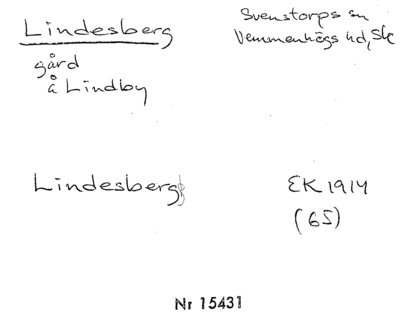 Lindesberg
Svenstorps sn
Vemmenhögs hd, Sk
gård
å Lindby
Lindesberg
EK 1914
(65)
Nr 15431